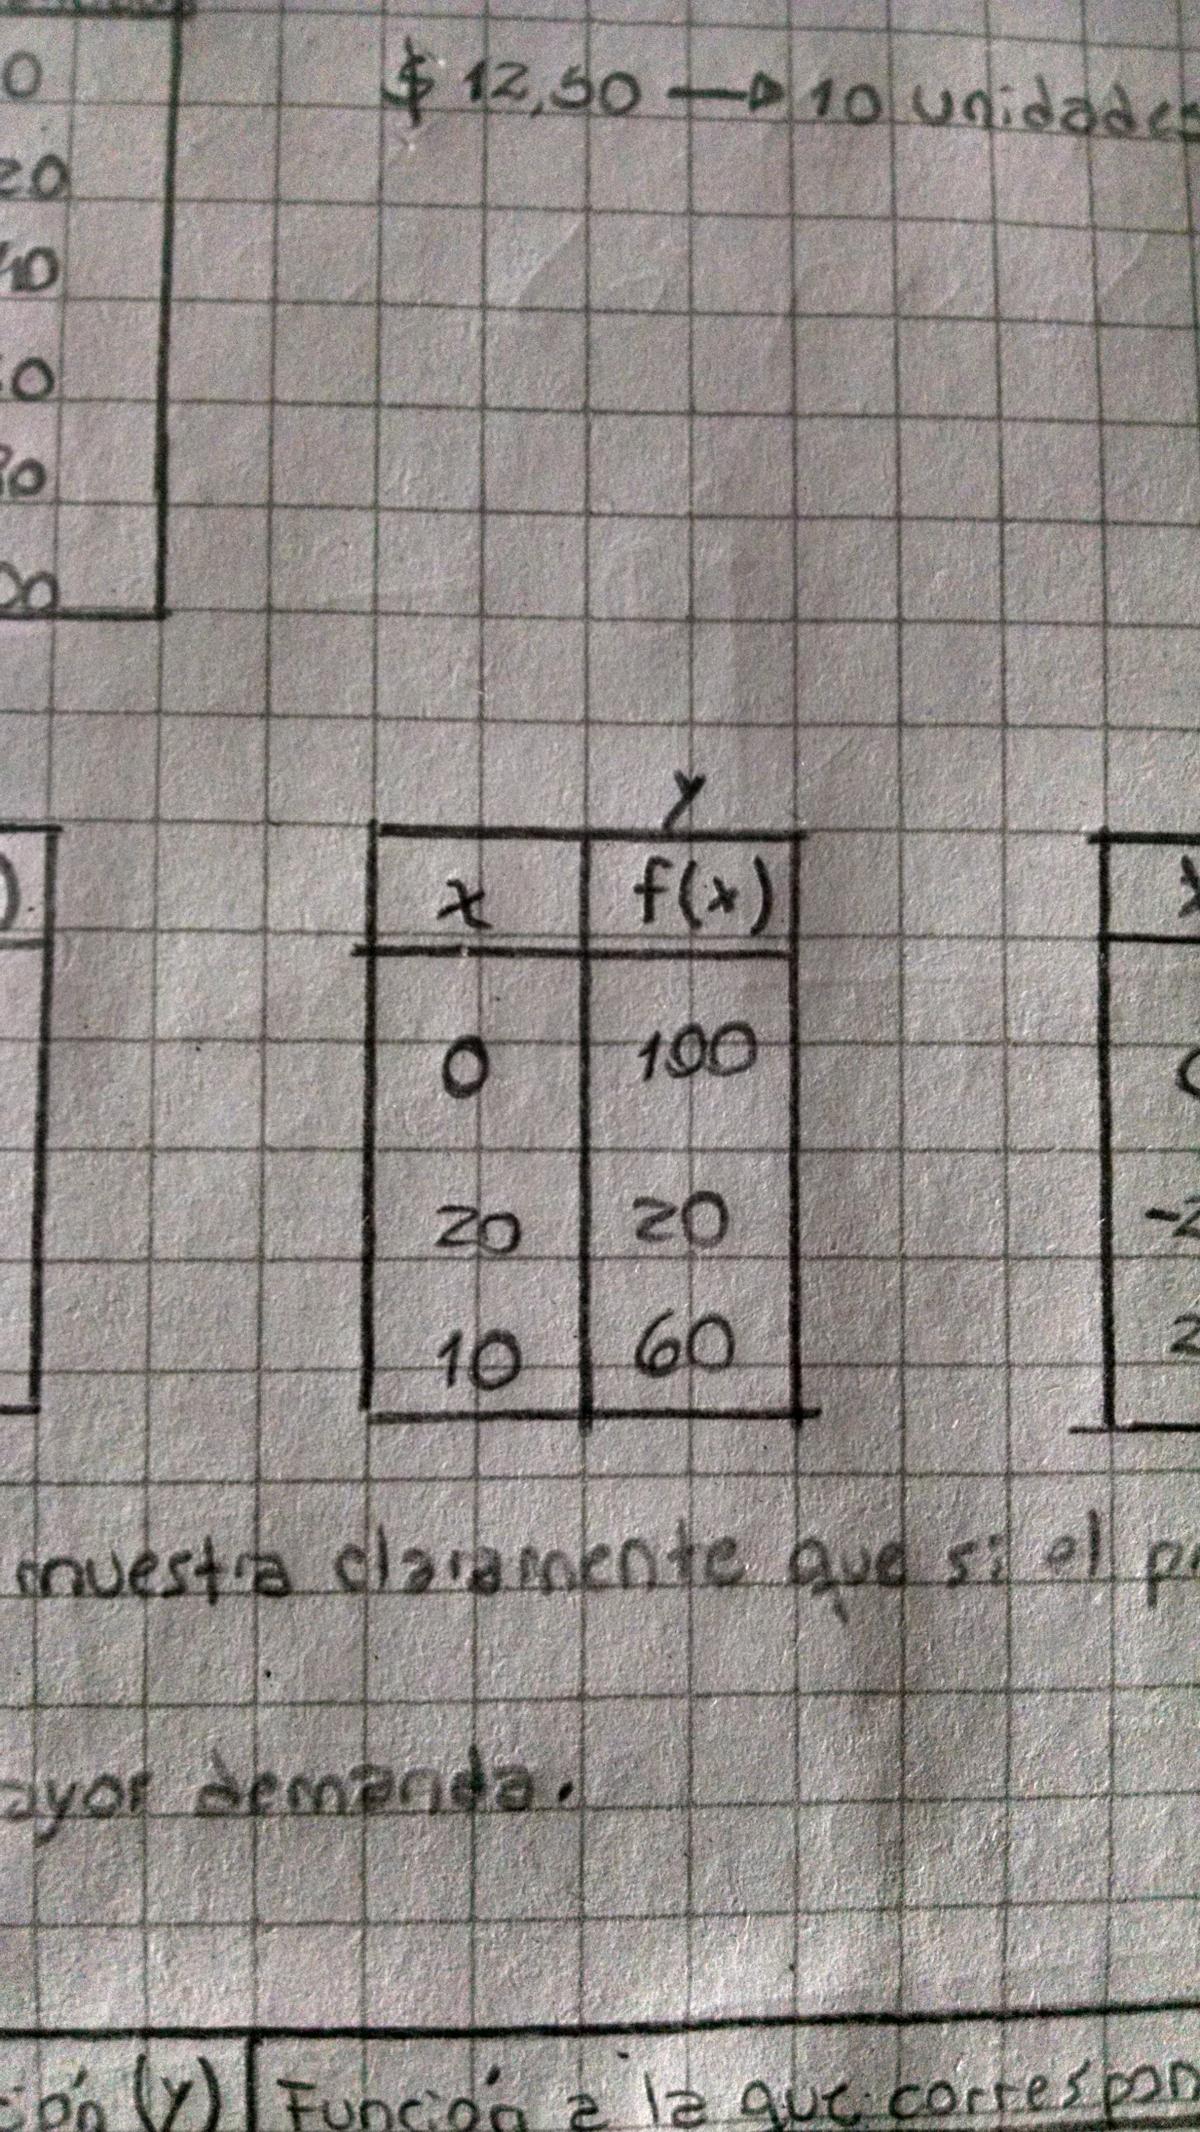 0
$ 12,50 → 10 unidades
20
40
0
80
00
y
x f(x)
0 100
20 20
10 60
-2
2
muestra claramente que si el
demanda.
(y) Función a la que